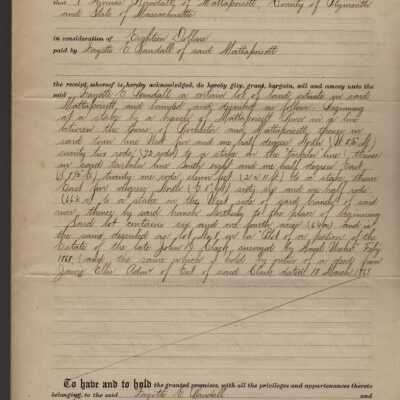 of Mattapoisett, County of Plymouth
and State of Massachusetts
in consideration of Eighteen Dollars
paid by Fayette E Randall of said Mattapoisett
the receipt whereof is hereby acknowledged, do hereby give, grant, bargain, sell and convey unto the
said Fayette E Randall a certain lot of land situate in said
Mattapoisett, and bounded and described as follows. Beginning
at a stake by a branch of Mattapoisett River in a line
between the towns of Rochester and Mattapoisett, thence in
said town line West four and one half degrees North
seventy two rods (72 rods) to a stake in the line; thence
in said line South eight and one half degrees East
twenty one rods, eleven feet to a stake; thence
East four degrees North sixty six and one half rods
to a stake on the West side of branch of said
river; thence by said branch Northerly to the place of beginning
Said lot contains six and one fourth acres and is
the same described as lot No 1 in a Plot of a portion of the
Estate of the late John Clark, surveyed by
1868, (and the same which I hold by virtue of a deed from
James Ellis Admr of Est of said Clark dated 18 March
To have and to hold the granted premises, with all the privileges and appurtenances thereto
belonging, to the said Fayette E Randall and